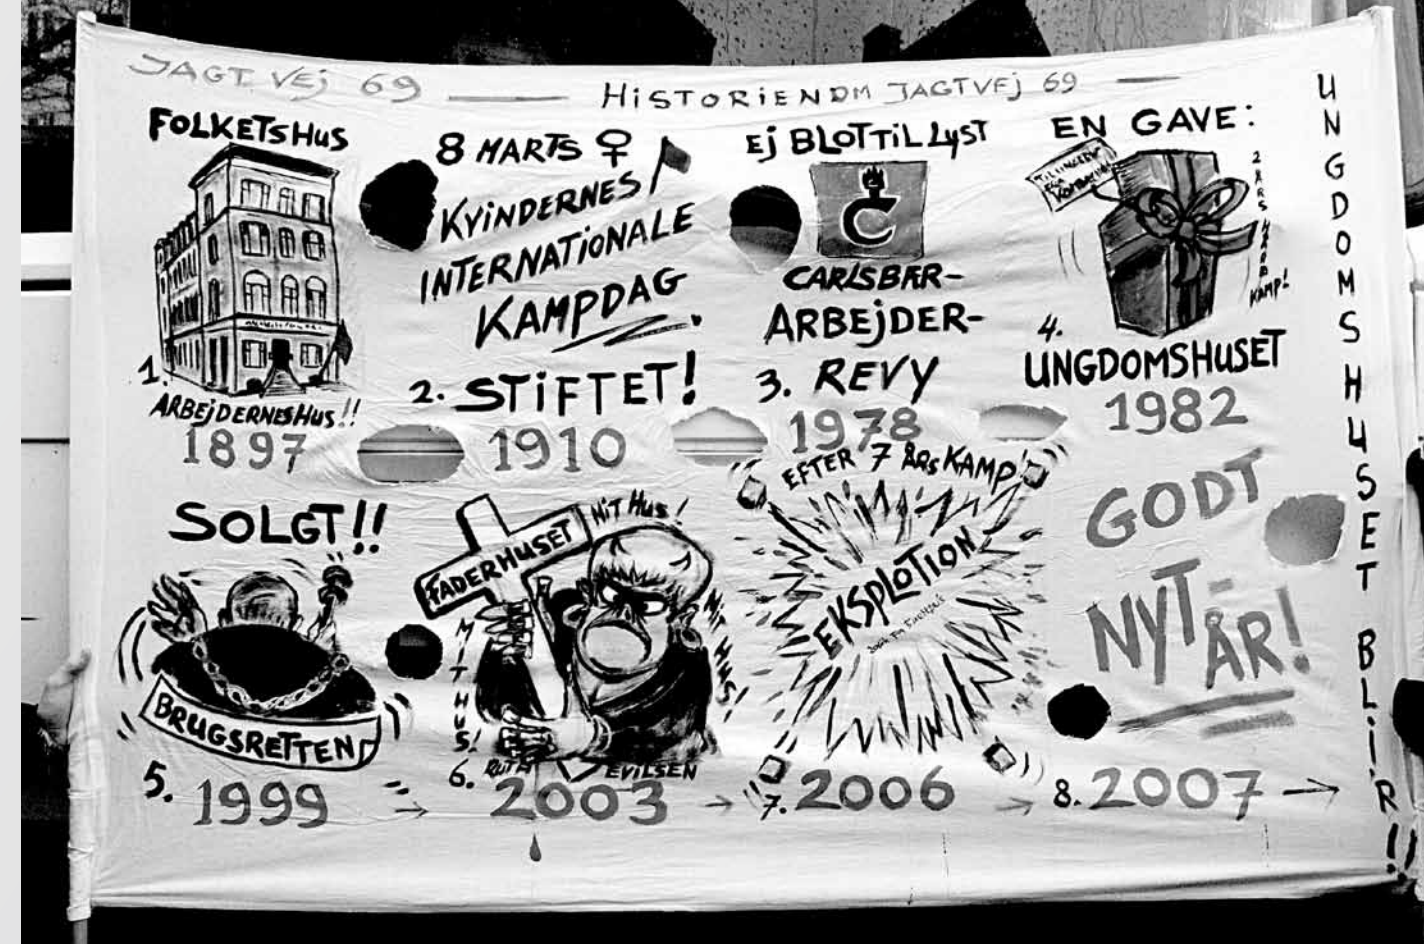 JAGTVEJ 69 — HISTORIEN OM JAGTVEJ 69 —
FOLKETS HUS
1.
ARBEJDERNES HUS!!
1897
8 MARTS ♀
KVINDERNES
INTERNATIONALE
KAMPDAG
2. STIFTET!
1910
Ej BLOT TIL LYST
C
CARLSBER-
ARBEJDER-
3. REVY
1978
EN GAVE:
2 ÅRS
KAMP!
4.
UNGDOMSHUSET
1982
SOLGT!!
BRUGSRETTEN
5. 1999
FADERHUSET
MIT HUS!
MIT HUS!
MIT HUS!
6. RUTH EVILSEN
2003
EFTER 7 ÅRS KAMP!
EKSPLOTION
7. 2006
GODT
NYT ÅR!
8. 2007
UNGDOMSHUSET BLIR!!